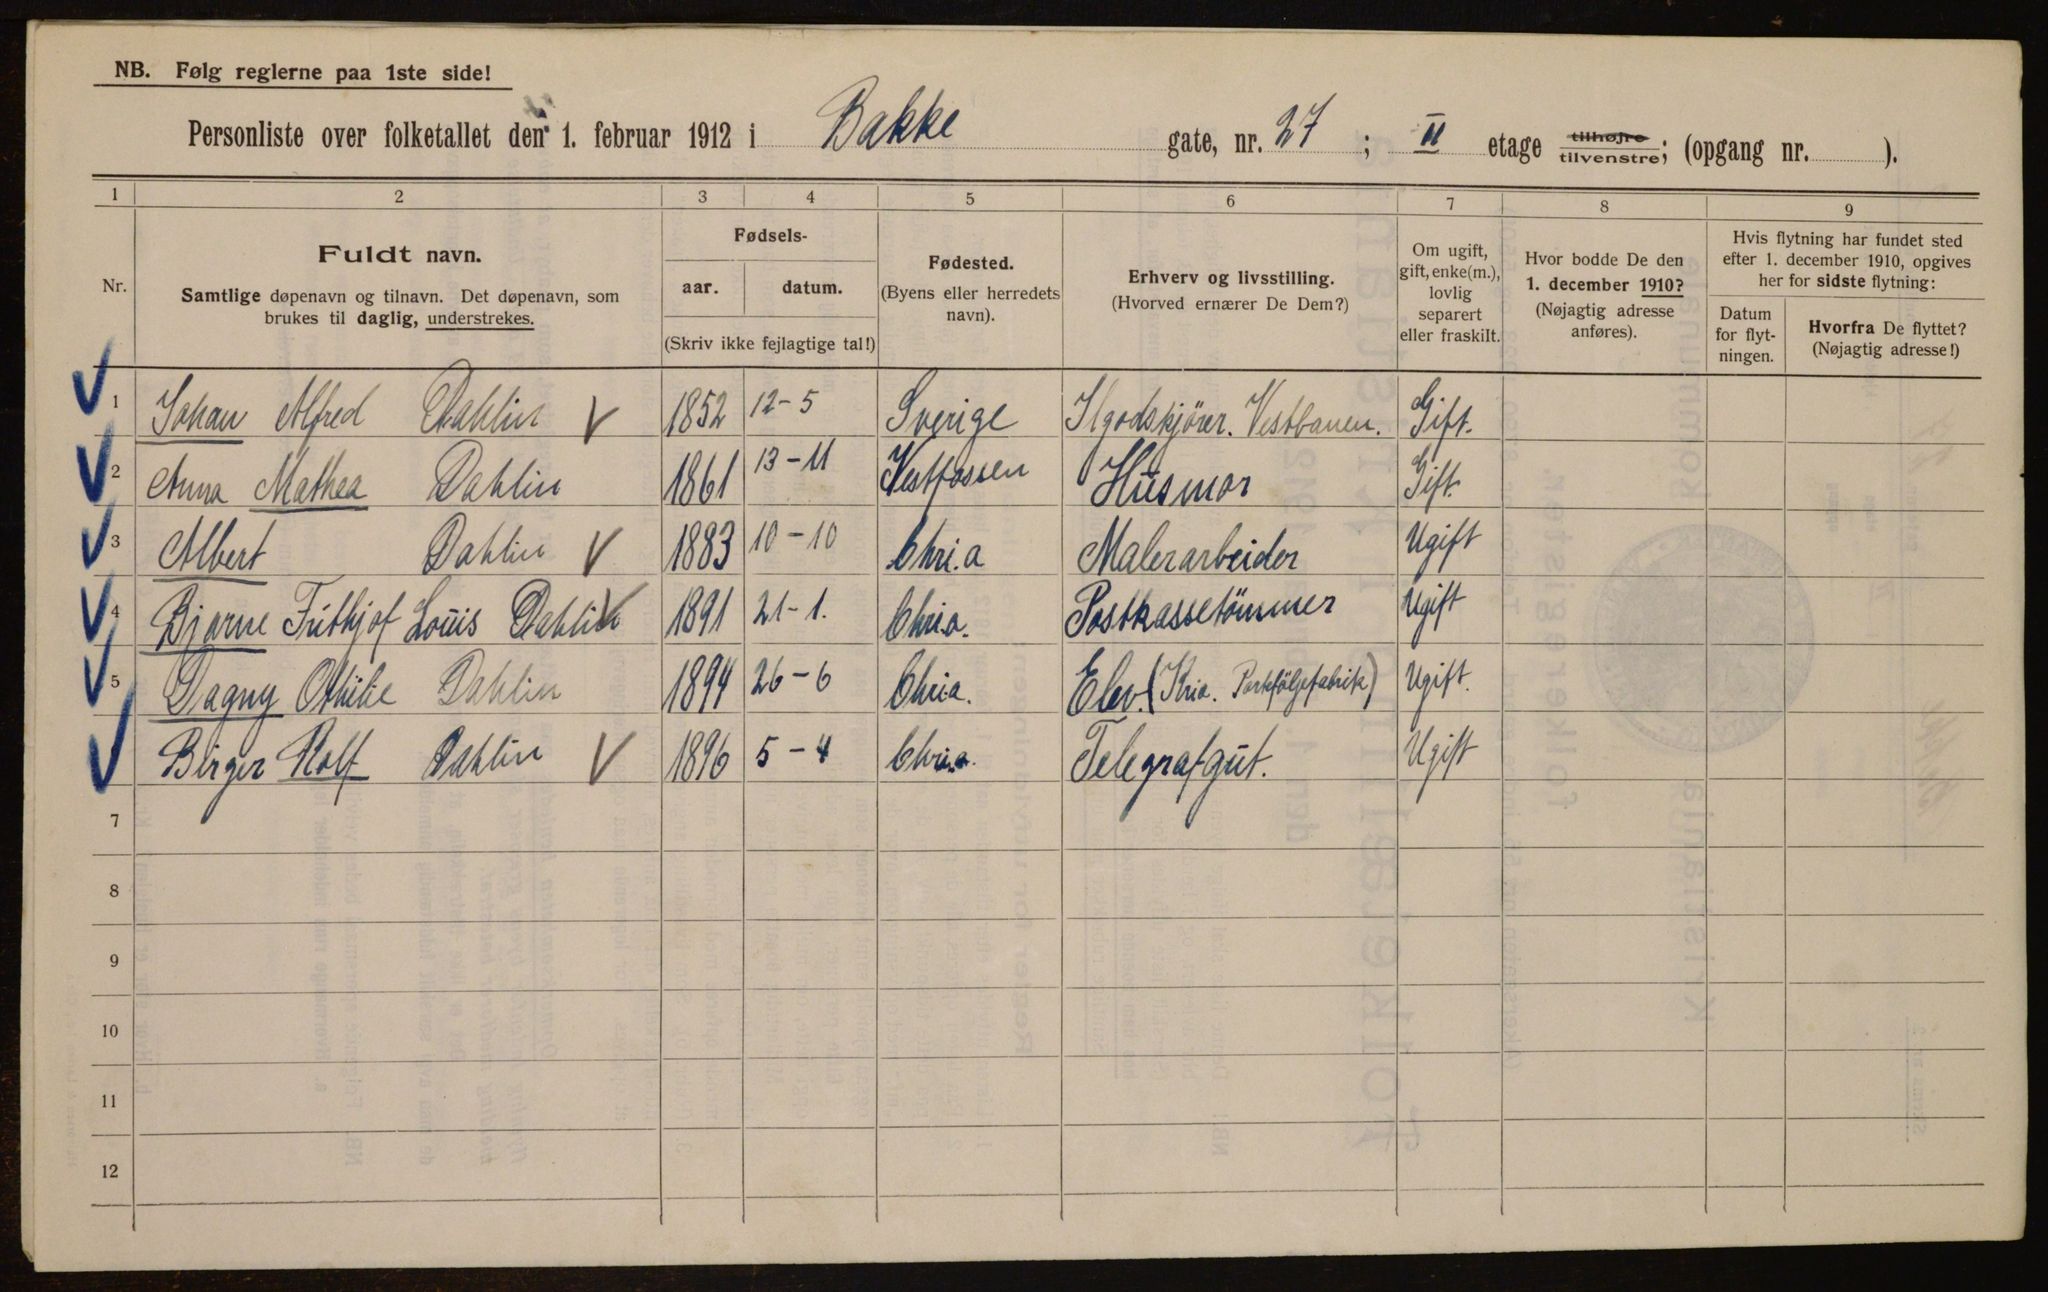 NB. Følg reglerne paa 1ste side!
Personliste over folketallet den 1. februar 1912 i Bakke gate, nr. 27 ; II etage tilhøjre tilvenstre; (opgang nr. ).
1 2 3 4 5 6 7 8 9
Nr.
Fuldt navn.
Samtlige døpenavn og tilnavn. Det døpenavn, som
brukes til daglig, understrekes.
Fødsels-
aar. datum.
(Skriv ikke fejlagtige tal!)
Fødested.
(Byens eller herredets
navn).
Erhverv og livsstilling.
(Hvorved ernærer De Dem?)
Om ugift,
gift, enke(m.),
lovlig
separert
eller fraskilt.
Hvor bodde De den
1. december 1910?
(Nøjagtig adresse
anføres).
Hvis flytning har fundet sted
efter 1. december 1910, opgives
her for sidste flytning:
Datum
for flyt-
ningen.
Hvorfra De flyttet?
(Nøjagtig adresse!)
1 Johan Alfred Dahlin 1852 12-5 Sverige Ilgodskjörer. Vestbanen. Gift.
2 Anna Mathea Dahlin 1861 13-11 Vestfossen Husmor Gift.
3 Albert Dahlin 1883 10-10 Chri.a Malerarbeider Ugift
4 Bjarne Frithjof Louis Dahlin 1891 21-1. Chri.a. Postkassetömmer Ugift
5 Dagny Othilie Dahlin 1894 26-6 Chri.a. Elev. (Kria. Portföljefabrik) Ugift.
Birger Rolf Dahlin 1896 5-4 Chri.a. Telegrafgut. Ugift
7
8
9
10
11
12